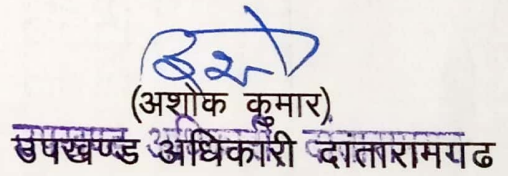 (अशोक कुमार)
उपखण्ड अधिकारी दातारामगढ